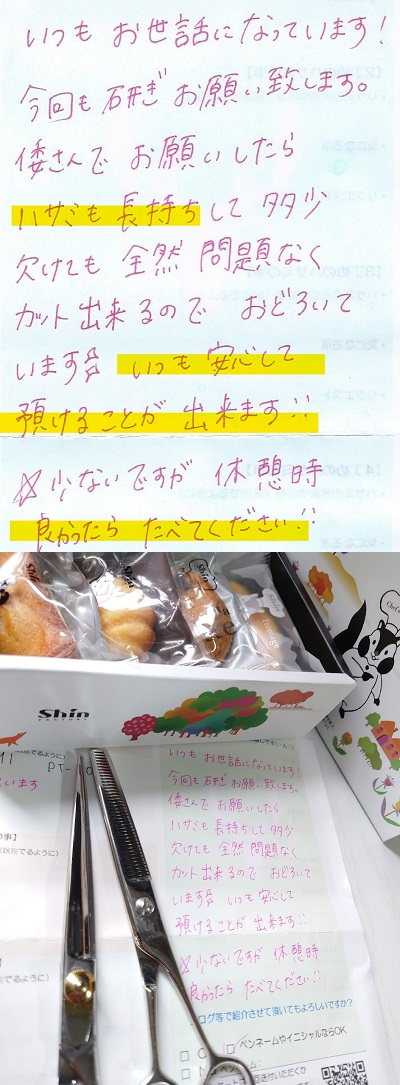 いつも お世話になっています!
今回も 研ぎ お願い致します。
倭さんで お願いしたら
ハサミも 長持ちして 多少
欠けても 全然 問題なく
カット出来るので おどろいて
います いつも 安心して
預けることが 出来ます!!
☆少ないですが 休憩時
良かったら たべてください!!
Shin
Shin
いつも お世話になっています!
今回も 研ぎ お願い致します。
倭さんで お願いしたら
ハサミも 長持ちして 多少
欠けても 全然 問題なく
カット出来るので おどろいて
います いつも 安心して
預けることが 出来ます!!
☆少ないですが 休憩時
良かったら たべてください!!
ログ等で紹介させて頂いてもよろしいですか?
ペンネームやイニシャルならOK